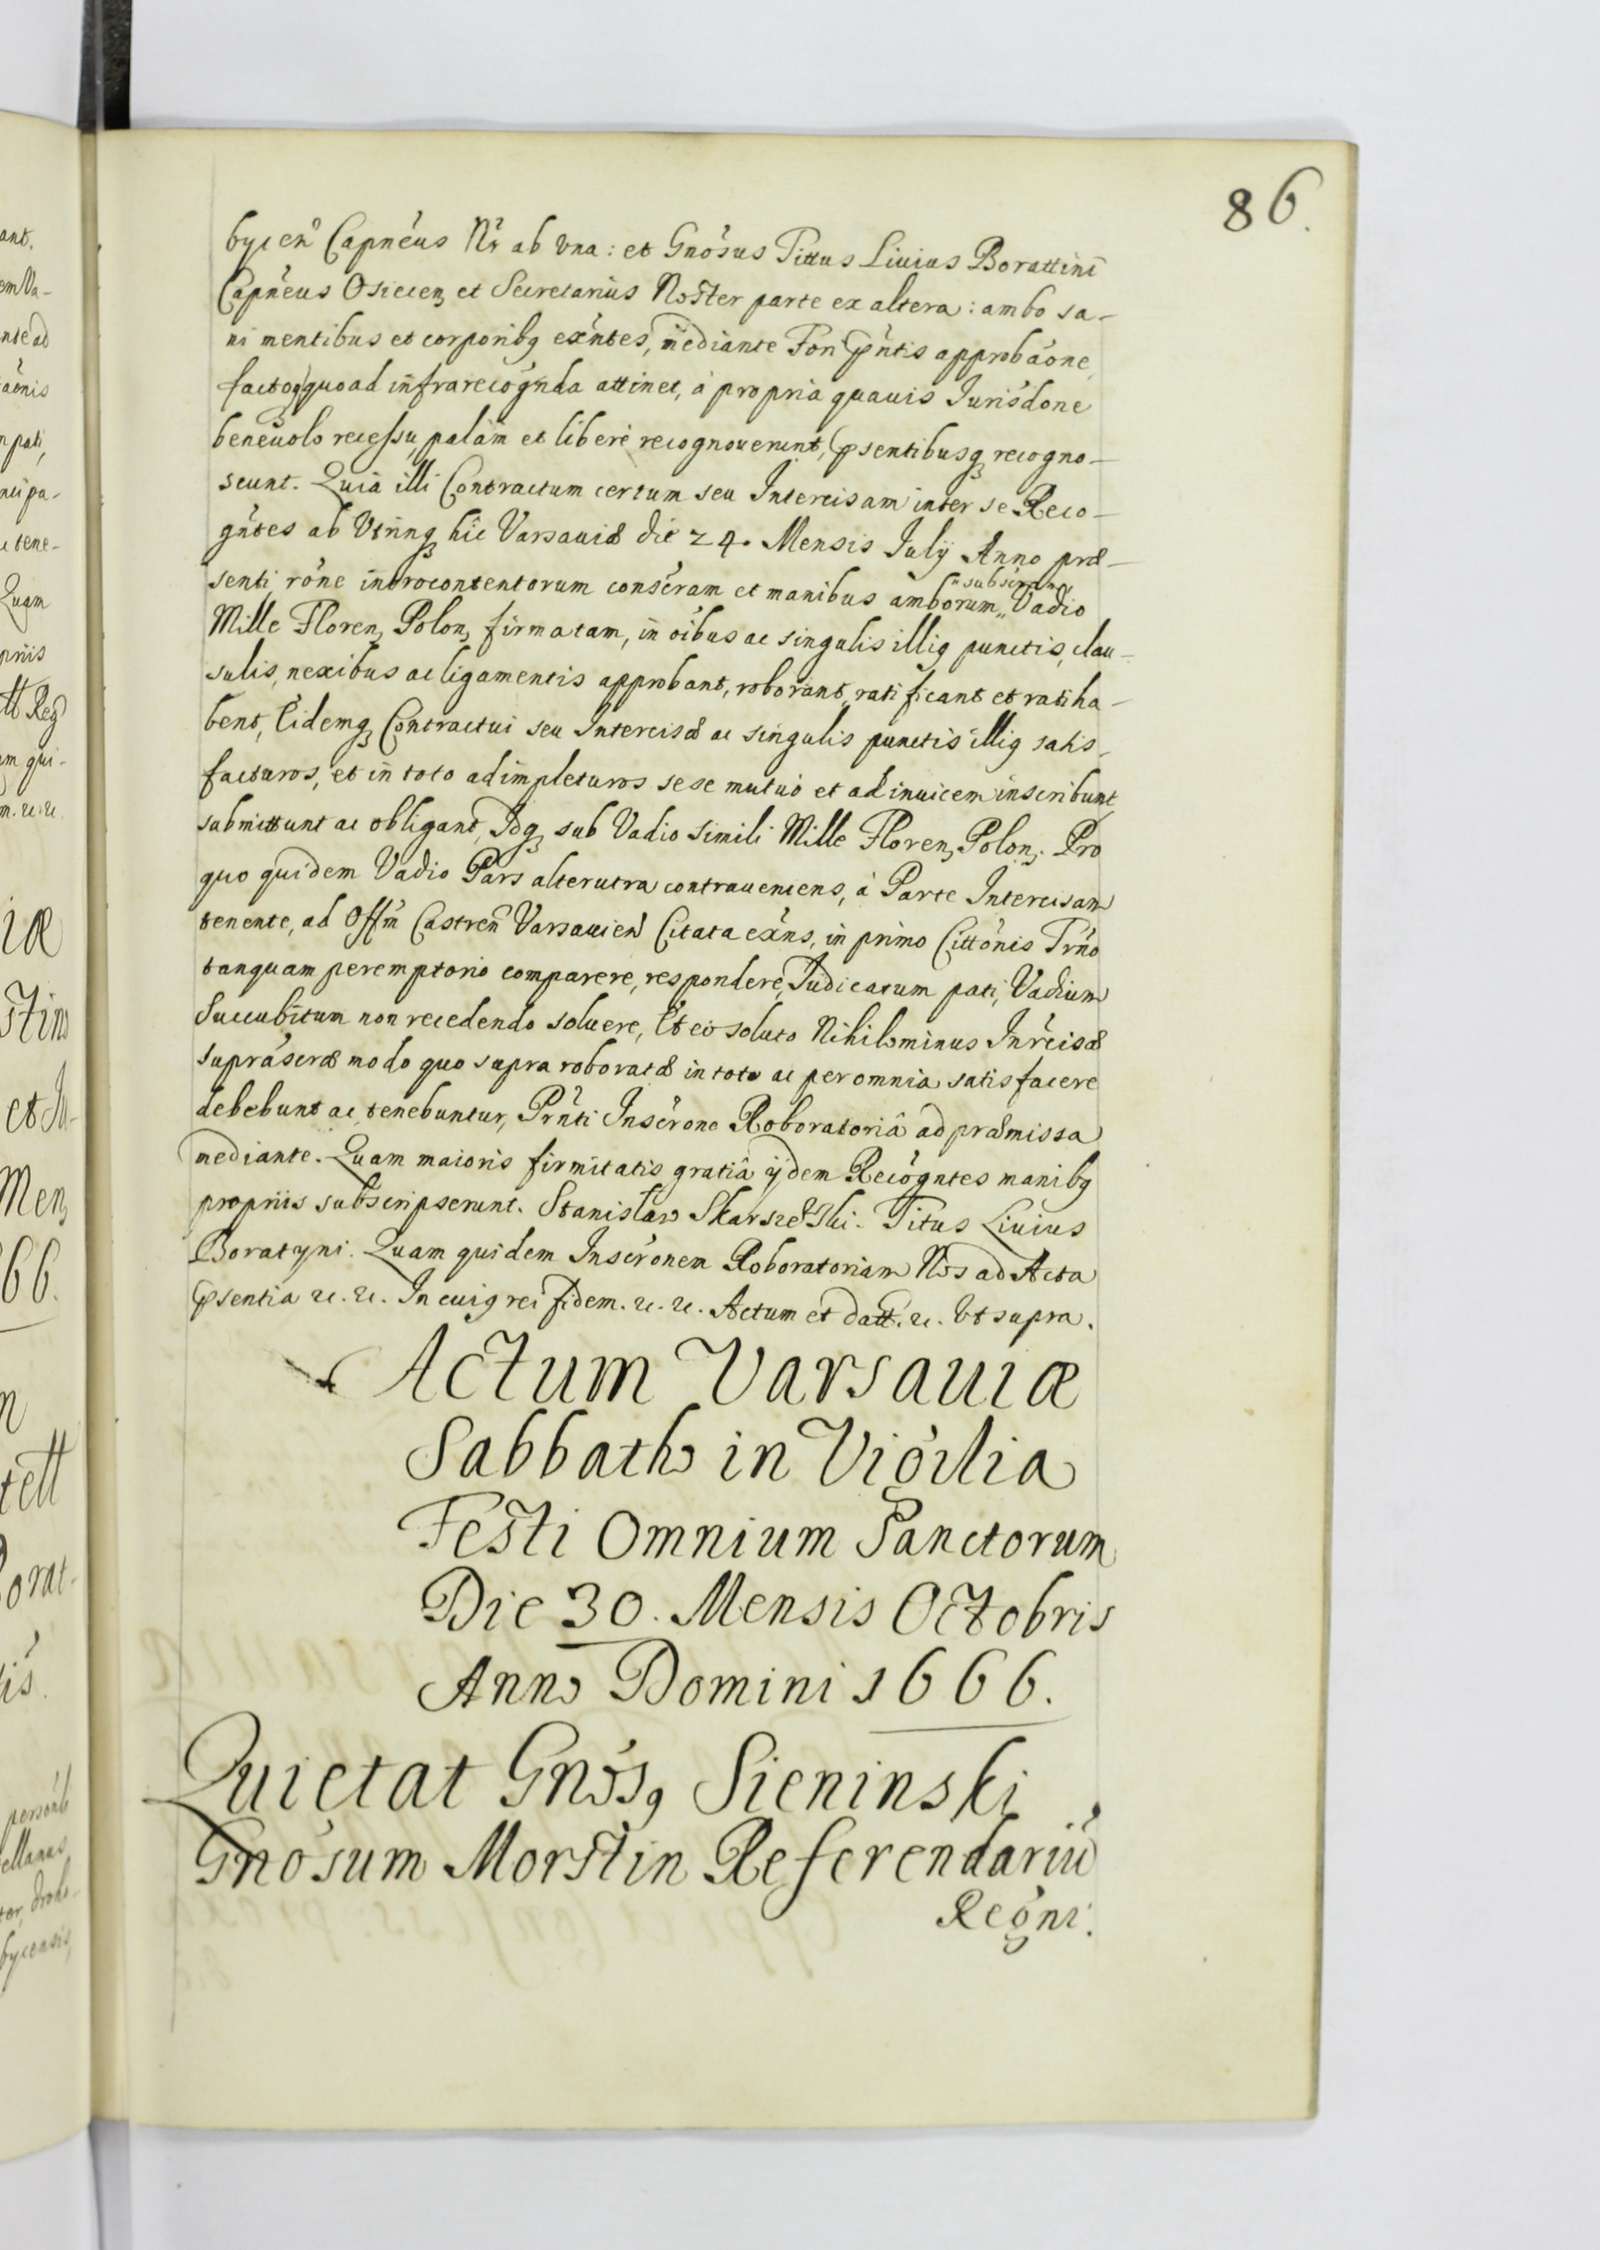 86.
bycen Capneus Nr ab vna: et Gnosus Tittus Liuius Borattini
Capneus Osiecen, et Secretarius Noster parte ex altera: ambo sa-
ni mentibus et corporibq exntes, mediante Fori pntis approbaone,
factoq quoad infrarecognda attinet, à propria quauis Jurisdone
beneuolo recessu, palàm et liberè recognouerunt, psentibusq recogno-
scunt. Quia illi Contractum certum seu Intercisam inter se Reco-
gntes ab Utrinq hic Varsauiæ die 24. Mensis Julij Anno præ-
senti, rone introcontentorum conseram et manibus amborum „ Vadio
„ subscram,
Mille Floren, Polon, firmatam, in oibus ac singulis illiq punctis, clau-
sulis, nexibus ac ligamentis approbant, roborant, ratificant et ratiha-
bent, Eidemq Contractui seu Intercisæ ac singulis punctis illiq satis-
facturos, et in toto adimpleturos sese mutuò et ad inuicem inscribunt
submittunt ac obligant, Idq sub Vadio simili Mille Floren, Polon,. Pro
quo quidem Vadio Pars alterutra contraueniens, à Parte Intercisam
tenente, ad Offm Castren Varsauien Citata exns, in primo Cittonis Trno
tanquam peremptorio comparere, respondere, Judicatum pati, Vadium
succubitum non recedendo soluere, Et eo soluto Nihilominus Inrcisæ
suprascræ modo quo supra roboratæ in toto ac per omnia satisfacere
debebunt ac tenebuntur, Prnti Inscrone Roboratoriâ ad præmissa
mediante. Quam maioris firmitatis gratiâ ijdem Recogntes manibq
proprijs subscripserunt. Stanisław Skarszewski. Titus Liuius
Boratyni. Quam quidem Inscronem Roboratoriam Nos ad Acta
psentia &c. &c. In cuiq rei fidem. &c. &c. Actum et datt. &c. Vt supra.
Actum Varsauiæ
Sabbatho in Vigilia
Festi Omnium Sanctorum
Die 30. Mensis Octobris
Anno Domini 1666.
Quietat Gnosq Sieninski
Gnosum Morstin Referendariũ
Regni.